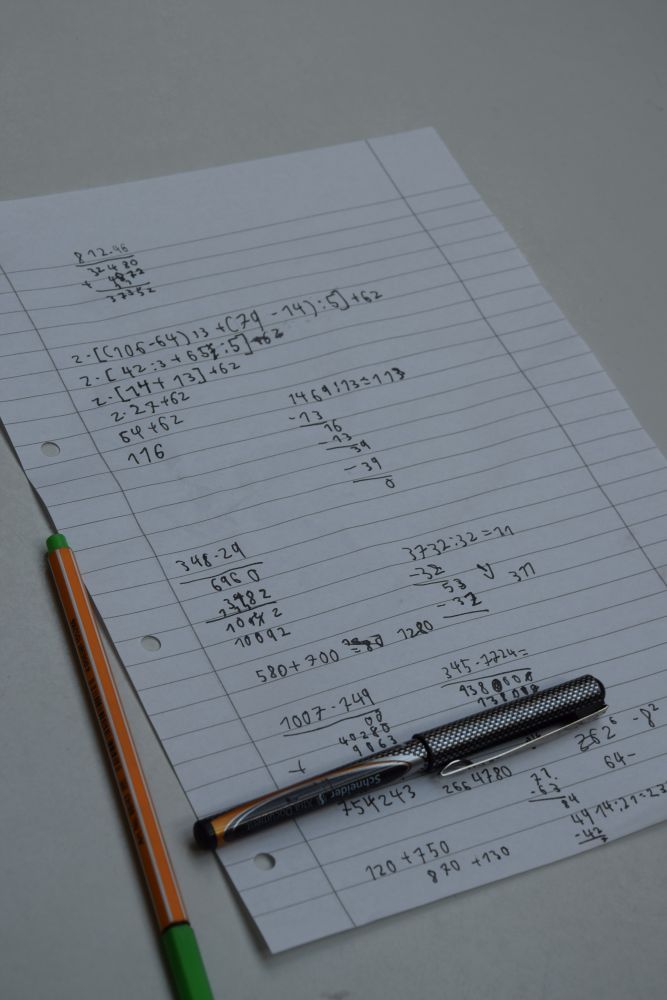 812·46
32480
+ 4872
37352
2·[(106-64):3+(79-14):5]+62
2·[42:3+65:5]+62
2·[14+13]+62
2·27+62
54+62
116
1469:13=113
-13
16
-13
39
-39
0
348·29
6960
3132
10092
3732:32=11
-32
53
-32
311
580+700
1280
1007·749
00
40280
9063
+
754243
345·7724=
2664780
Schneider Xtra Document
262⁶ -8²
64-
71
-63
84
4914:21=23
-42
120+750
870+130